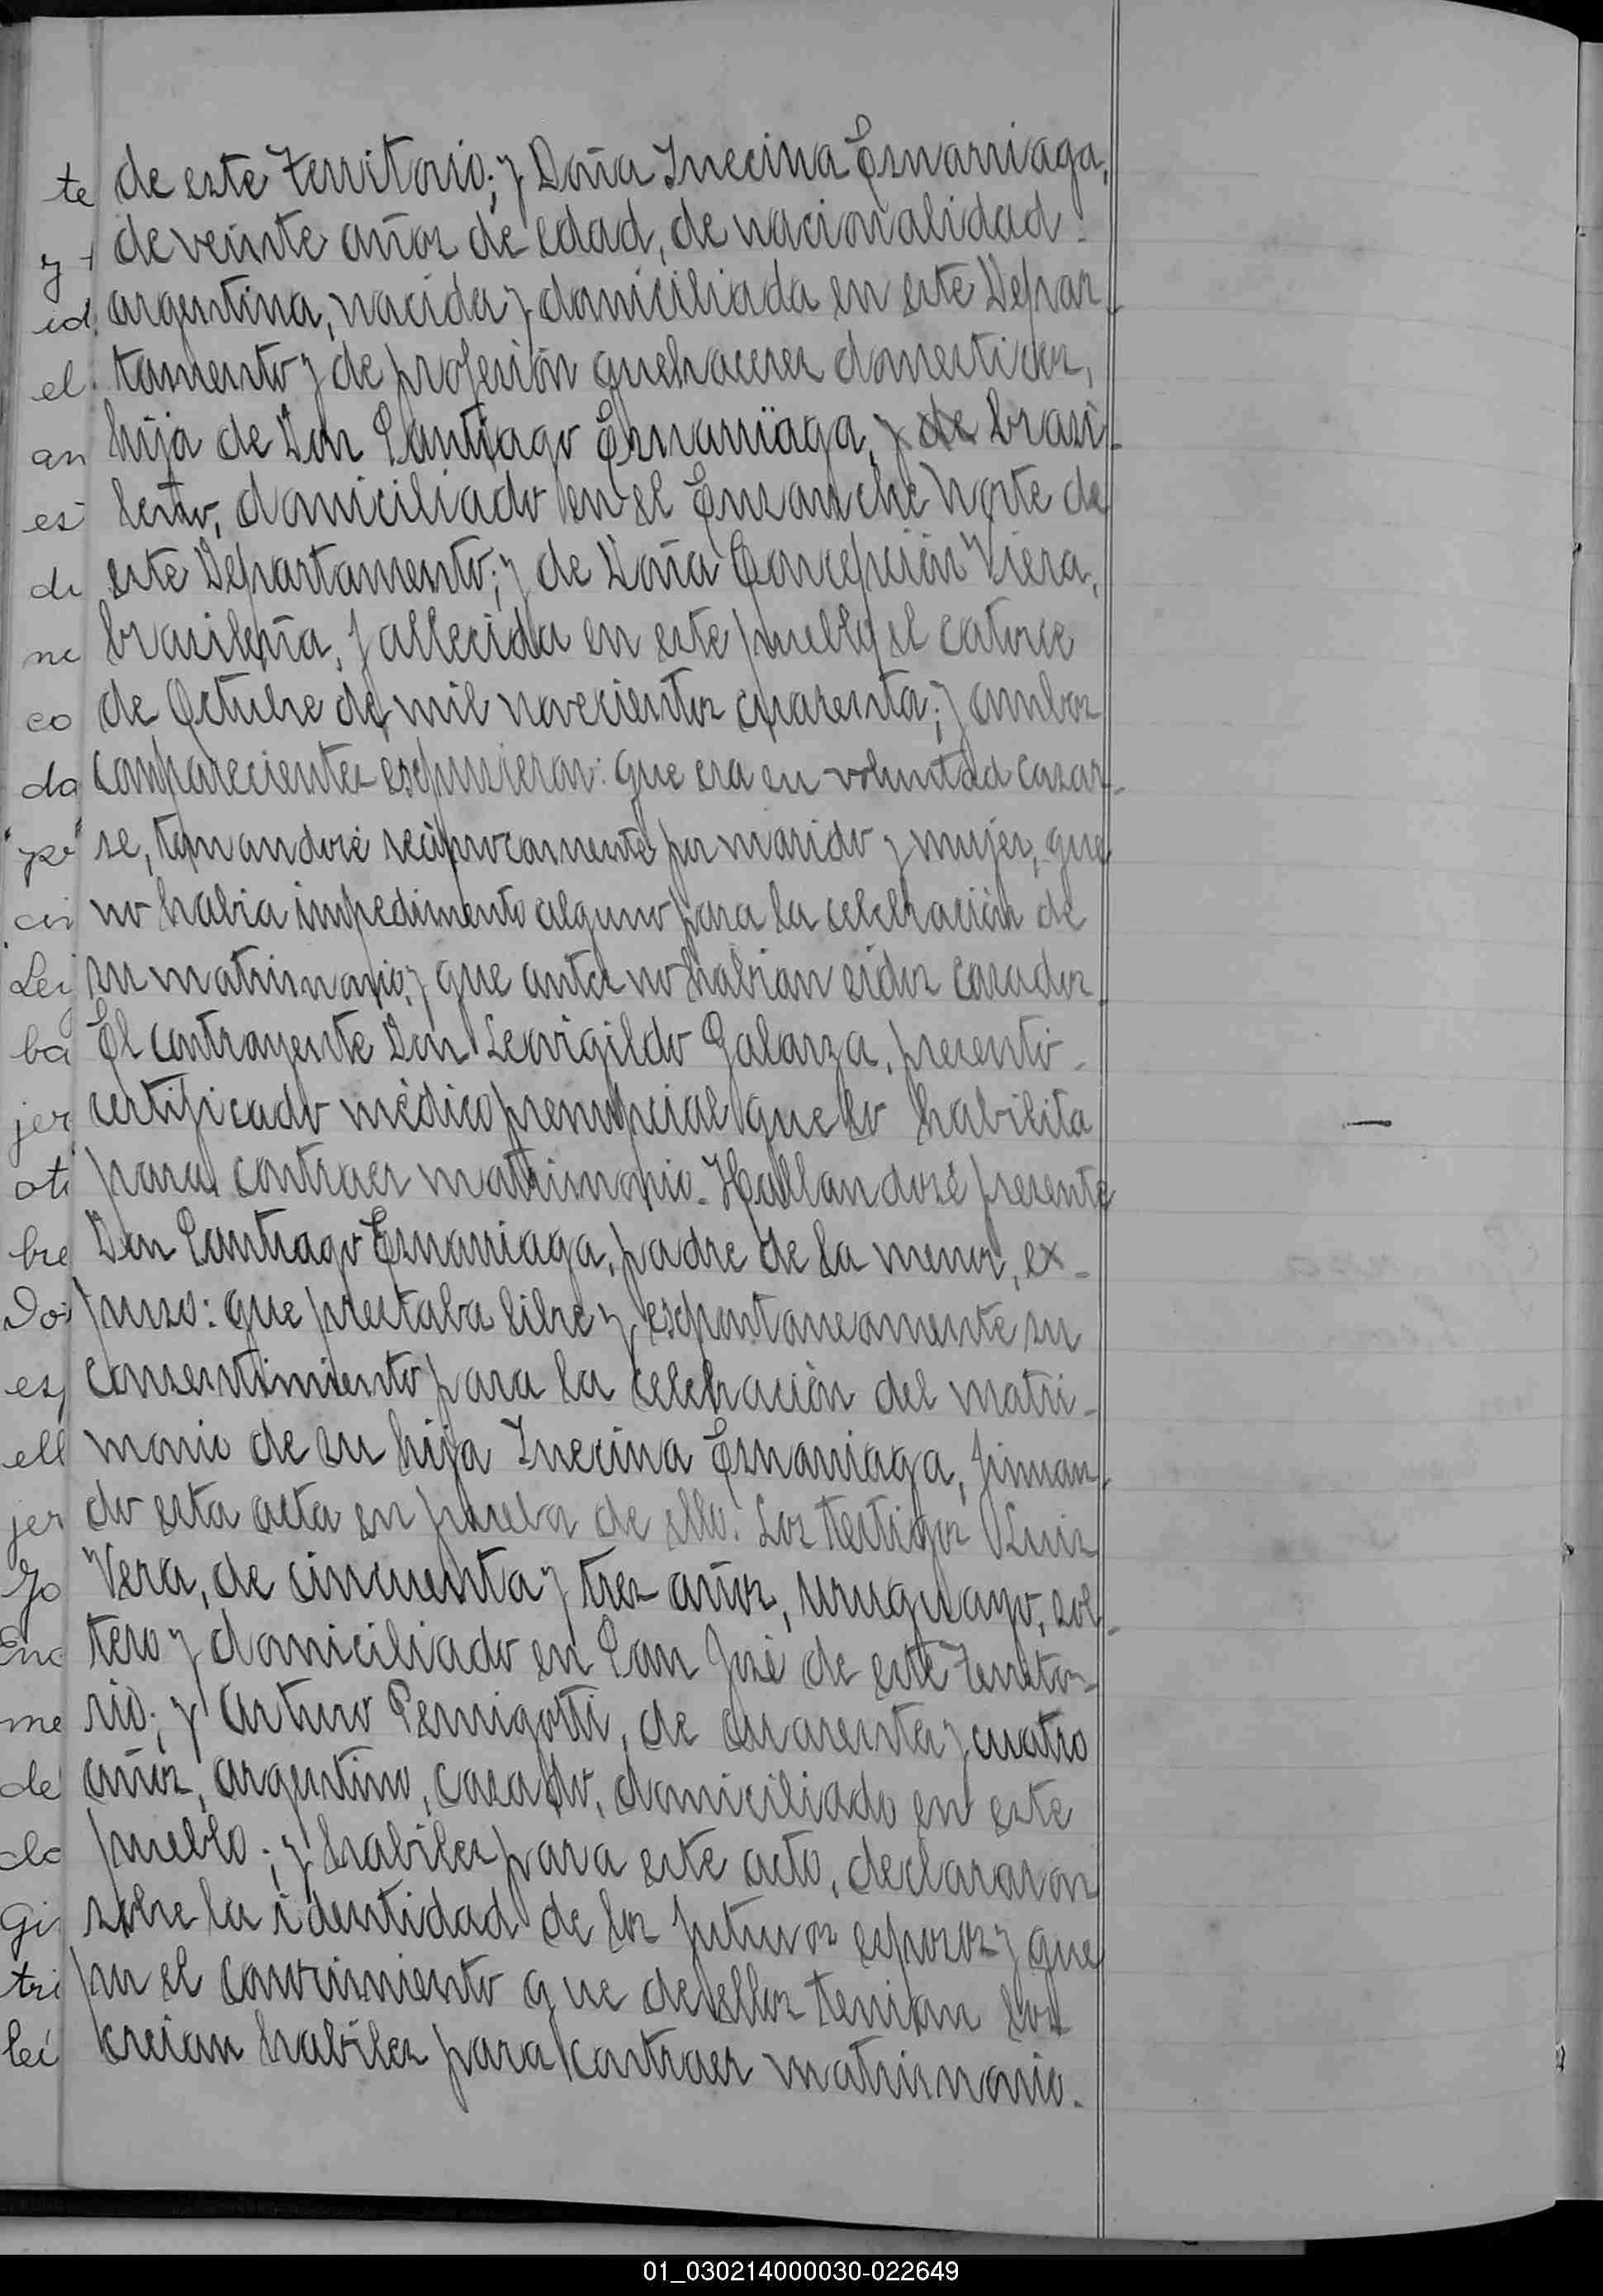 de este Territorio; y Doña Inecina Esnarriaga,
de veinte años de edad, de nacionalidad
argentina, nacida y domiciliada en este Depar-
tamento y de profesión quehaceres domesticos,
hija de Don Santiago Esnarriaga, y de brasi-
leño, domiciliado en el Ensanche Norte de
este Departamento; y de Doña Concepción Viera,
brasileña, fallecida en este pueblo el catorce
de Octubre de mil novecientos cuarenta; y ambos
comparecientes espusieron: que era su voluntad casar-
se, tomandosé reciprocamente por marido y mujer, que
no habia impedimento alguno para la celebración de
su matrimonio, y que antes no habian sidos casados.
El contrayente Don Leovigildo Galarza, presentó
certificado médico prenupcial que lo habilita
para contraer matrimonio. Hallandosé presente
Don Santiago Esnarriaga, padre de la menor, ex-
puso: que prestaba libre y espontaneamente su
consentimiento para la celebración del matri-
monio de su hija Inecina Esnarriaga, firman-
do esta acta en prueba de ello. Los testigos Luis
Vera, de cincuenta y tres años, uruguayo, sol-
tero y domiciliado en San José de este Territo-
rio; y Arturo Pernigotti, de cuarenta y cuatro
años, argentino, casado, domiciliado en este
pueblo; y habiles para este acto, declararon
sobre la identidad de los futuros esposos y que
por el conosimiento que de ellos tenian los
creian habiles para contraer matrimonio.
01_030214000030-022649